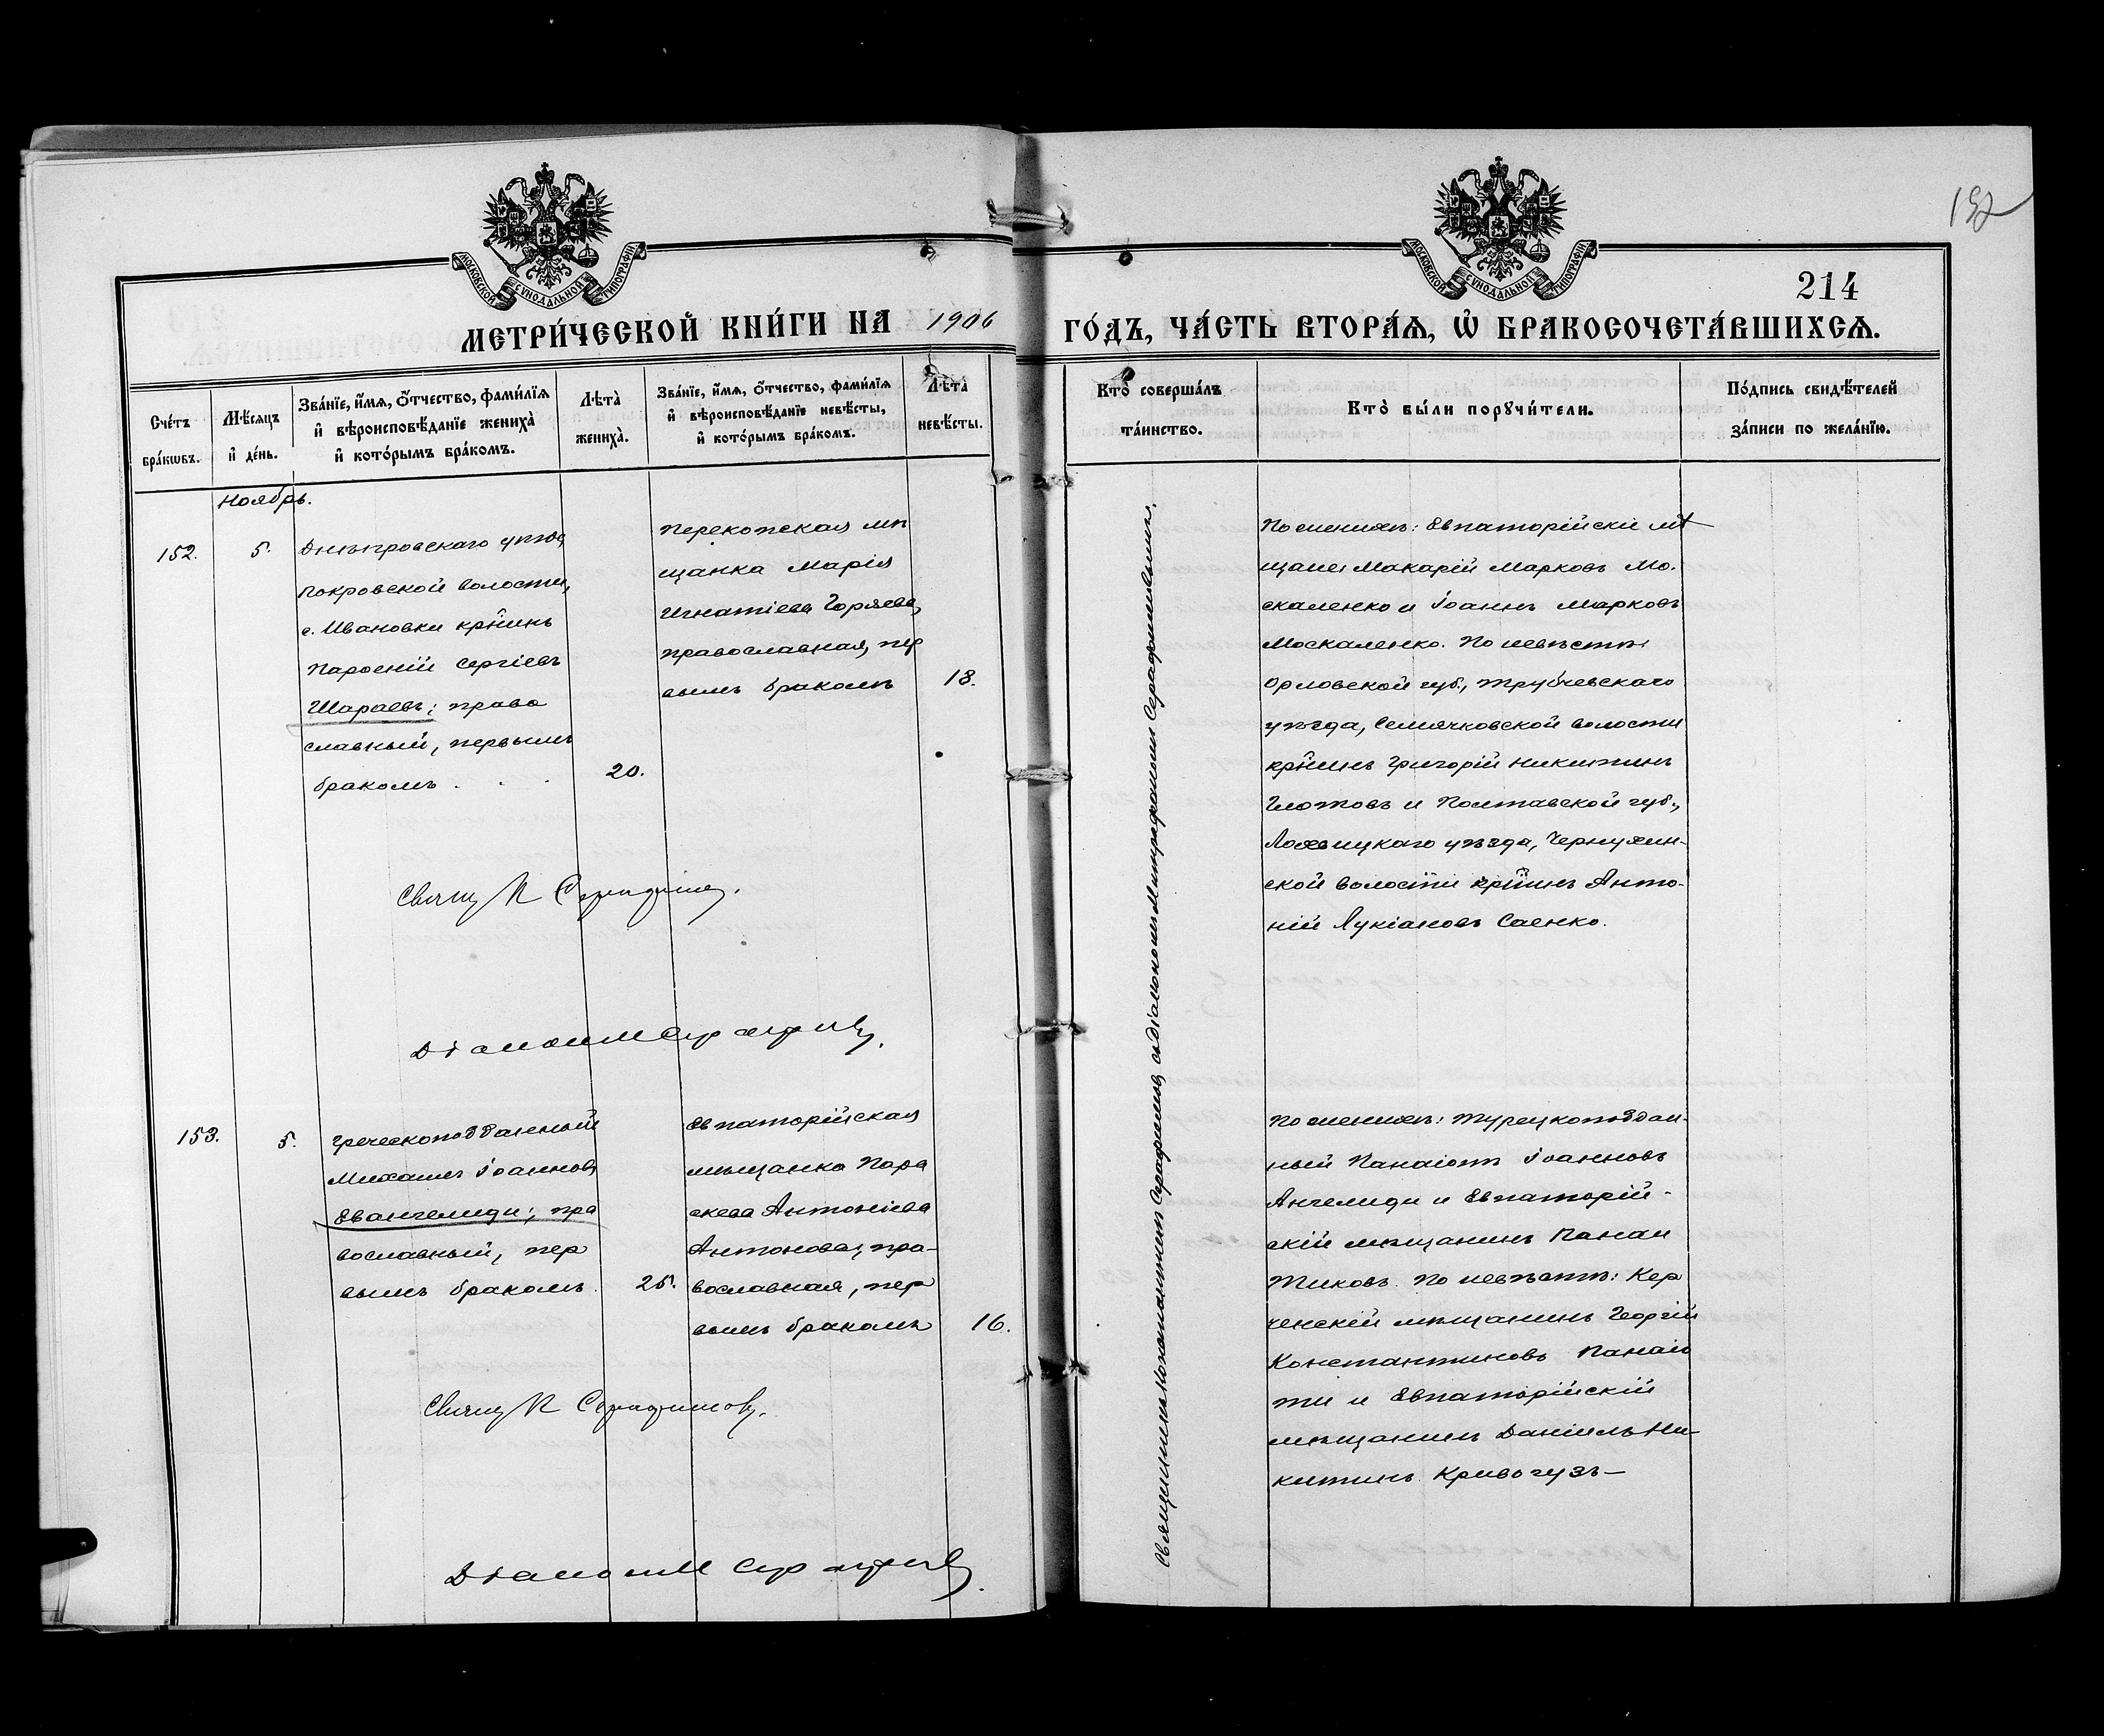 192
МОСКОВСКОЙ СѴНОДАЛЬНОЙ ТИПОГРАФІИ
МОСКОВСКОЙ СѴНОДАЛЬНОЙ ТИПОГРАФІИ
214
МЕТРИ́ЧЕСКОЙ КНИ́ГИ НА 1906 ГО́ДЪ, ЧА́СТЬ ВТОРА́Ѧ, Ѽ БРАКОСОЧЕТА́ВШИХСѦ.
Сче́тъ
бра́кѡвъ.
Мѣ́сѧцъ
и҆ де́нь.
Зва́нїе, и҆́мѧ, ѻ҆́тчество, фами́лїѧ
и҆ вѣроисповѣ́данїе жениха̀
и҆ кото́рымъ бра́комъ.
Лѣ́та̀
жениха̀.
Зва́нїе, и҆́мѧ, ѻ҆́тчество, фами́лїѧ
и҆ вѣроисповѣ́данїе невѣ́сты,
и҆ кото́рымъ бра́комъ.
Лѣ́та̀
невѣ́сты.
Кто̀ соверша́лъ
та́инство.
Кто̀ бы́ли порꙋчи́тели.
По́дпись свидѣ́телей
за́писи по жела́нїю.
Ноябрь.
152.
5.
Днѣпровскаго уѣзда,
Покровской волости,
с. Ивановки кр̃нинъ
Парѳеній Сергіевъ
Шараевъ; право
славный, первымъ
бракомъ . . .
20.
Перекопская мѣ
щанка Марія
Игнатіева Горяева,
православная, пер
вымъ бракомъ
18.
Священникъ Константинъ Серафимовъ съ діакономъ Митрофаномъ Серафимовымъ.
По женихѣ: Евпаторійскіе мѣ
щане: Макарій Марковъ Мо-
скаленко и Іоаннъ Марковъ
Москаленко. По невѣстѣ:
Орловской губ., Трубчевскаго
уѣзда, Семячковской волости
кр̃нинъ Григорій Никитинъ
Глотовъ и Полтавской губ.,
Лохвицкаго уѣзда, Чернухин-
ской волости кр̃нинъ Анто-
ній Лукіановъ Саенко.
Свящ К Серафимовъ.
Діаконъ М Серафимовъ.
153.
5.
Греческоподданный
Михаилъ Іоанновъ
Евангелиди; пра
вославный, пер
вымъ бракомъ.
25.
Евпаторійская
мѣщанка Пара
скева Антоніева
Антонова, пра-
вославная, пер
вымъ бракомъ
16.
По женихѣ: Турецкоподдан-
ный Панаіотъ Іоанновъ
Ангелиди и Евпаторій-
скій мѣщанинъ Панаи
Тиковъ. По невѣстѣ: Кер
ченскій мѣщанинъ Георгій
Константиновъ Панаіо
ти и Евпаторійскій
мѣщанинъ Даніилъ Ни-
китинъ Кривогузъ—
Свящ К Серафимовъ.
Діаконъ М Серафимовъ.